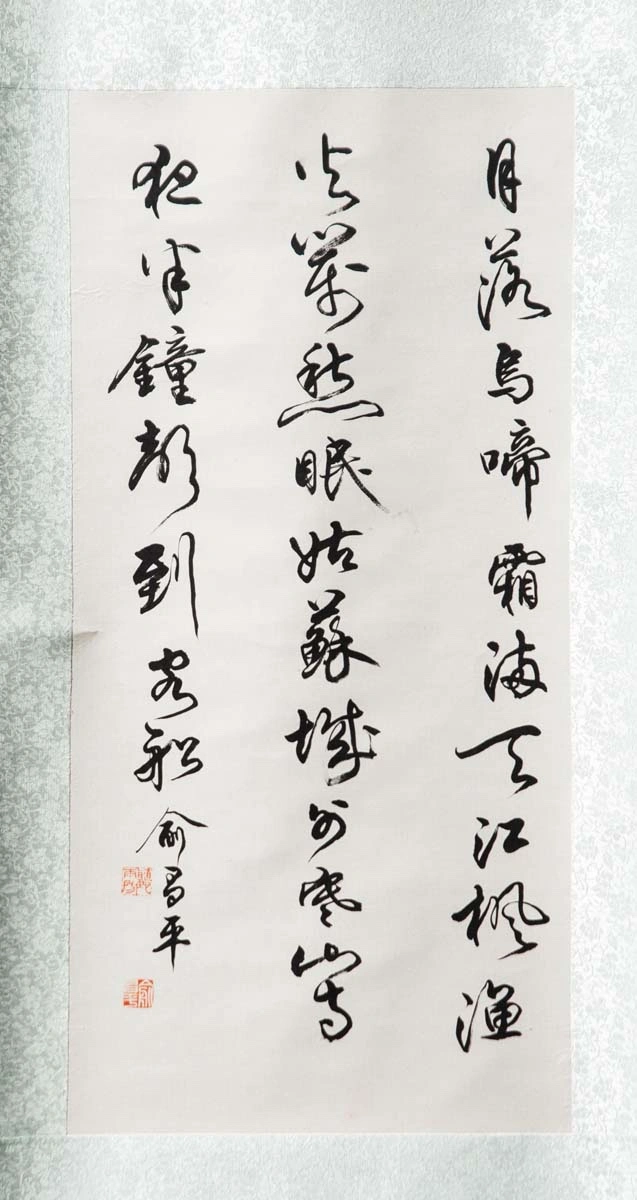 月落烏啼霜滿天江楓漁
火對愁眠姑蘇城外寒山寺
夜半鐘聲到客船 俞昌平